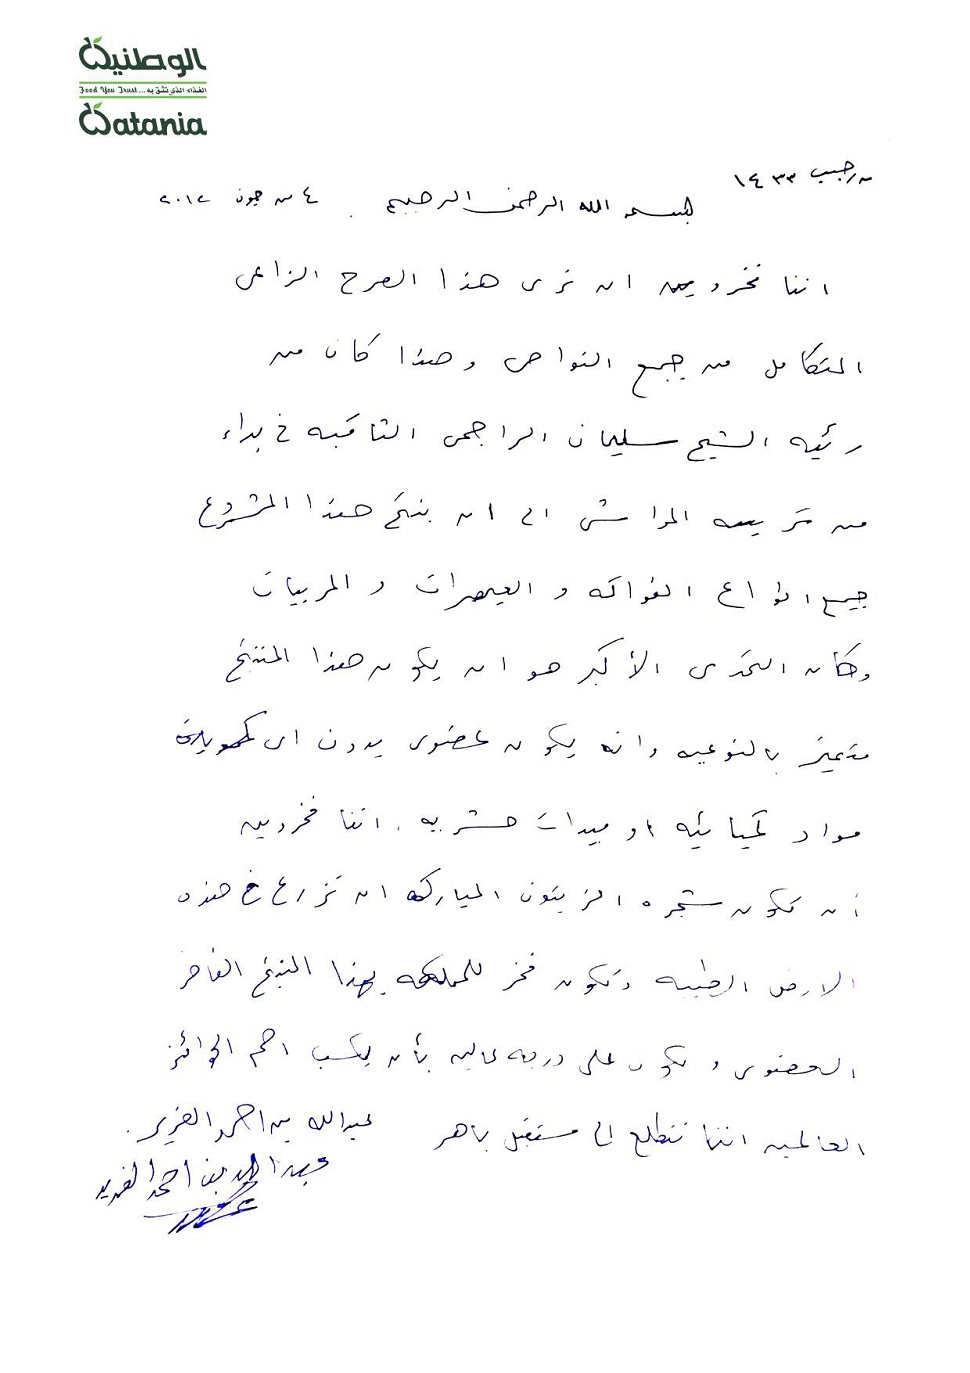 الوطنية
Food You Trust... الغذاء الذي تثق به
Watania
من رجب ١٤٣٣
بسم الله الرحمن الرحيم . ٤ من جون ٢٠١٢
اننا فخورين ان نرى هذا الصرح الزاعي
المتكامل من جميع النواحي وهذا كان من
رئيه الشيخ سليمان الراجحي الثاقبه في بداء
من تربيه المواشي الى ان ينتج هذا المشروع
جميع انواع الفواكه و العصيرات و المربيات
وكان التحدى الأكبر هو ان يكون هذا المنتج
متميز بالنوعيه وانه يكون عضوى بدون اى
مواد كيمائيه او مبيدات حشريه . اننا فخورين
أن تكون شجره الزيتون المباركه ان تزرع في هذه
الارض الطيبه وتكون فخر للمملكه بهذا المنتج الفاخر
العضوى و تكون على درجه عاليه بأن يكسب اهم الجوائز
العالميه اننا نتطلع الى مستقبل باهر
عبدالله بن احمد
عبدالله بن احمد